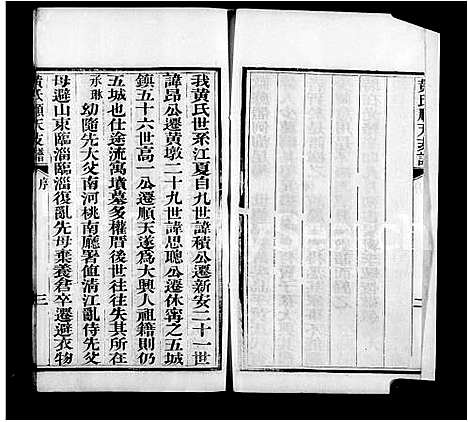 我黃氏世系江夏自九世諱積公遷新安二十一世
諱昂公遷黃墩二十九世諱思聰公遷休寧之五城
鎮五十六世高一公遷順天遂為大興人祖籍則仍
五城也仕途流寓墳墓多權厝後世往往失其所在
承琳幼隨先大父南河桃南廳署值清江亂侍先父
母避山東臨淄臨淄復亂先母棄養倉卒遷避衣物
黃氏順天支譜
序
三
黃氏順天支譜
二